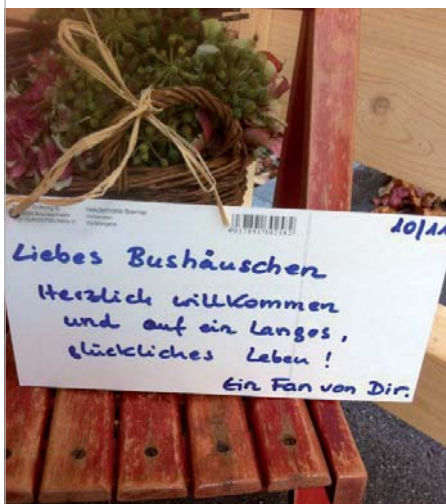 10/11
Liebes Bushäuschen
Herzlich willkommen
und auf ein langes,
glückliches Leben!
Ein Fan von Dir.